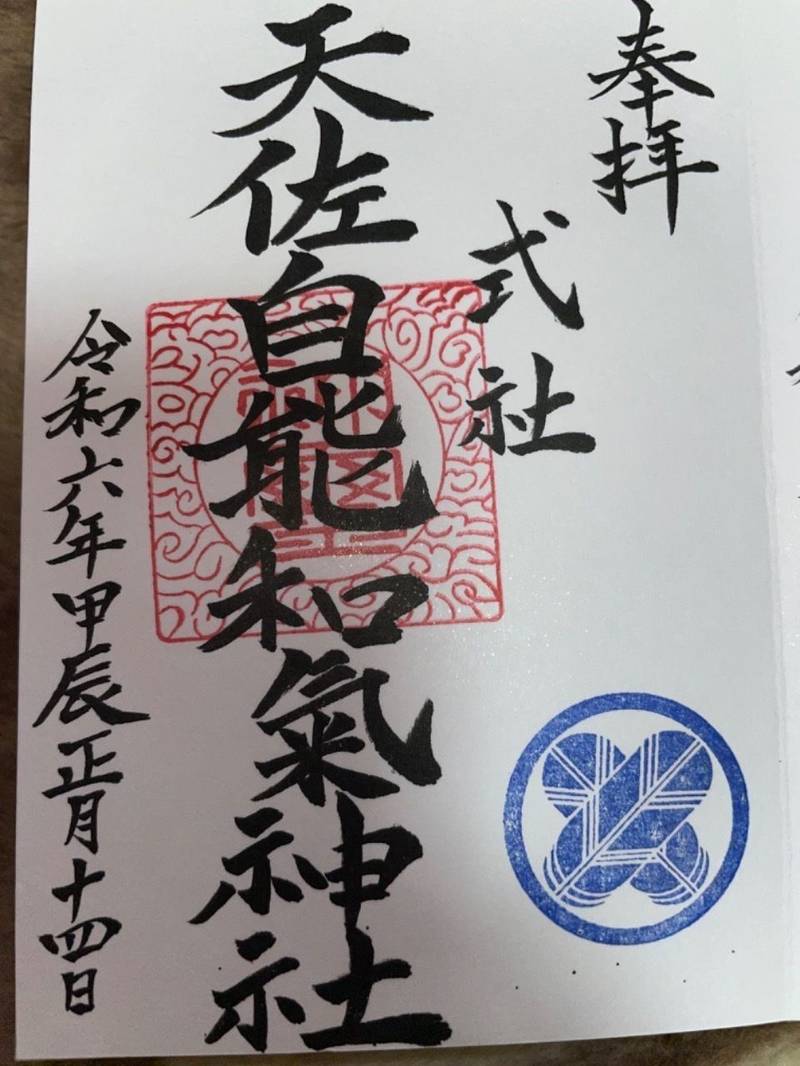 奉拝
式社
天佐自能和氣神社
令和六年甲辰正月十四日